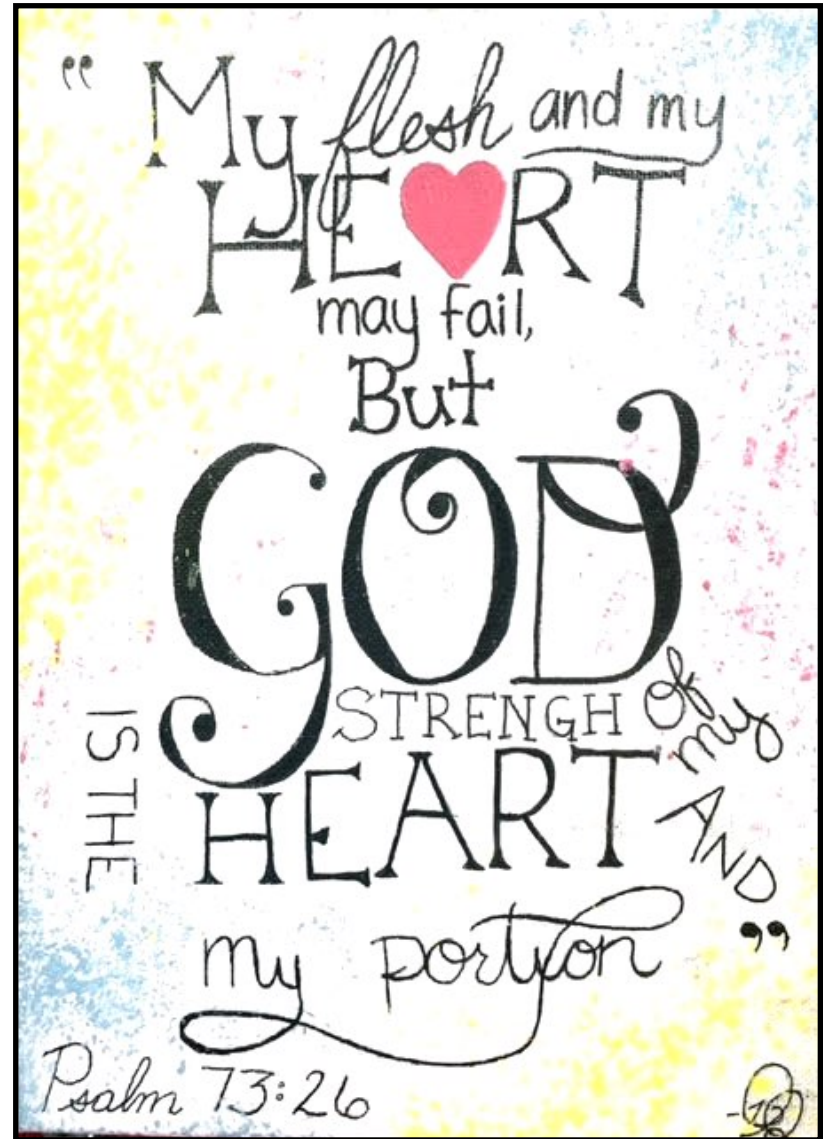 “ My flesh and my
HE RT
may fail,
But
GOD
IS THE
STRENGH of my
HEART
AND
my portion ”
Psalm 73:26